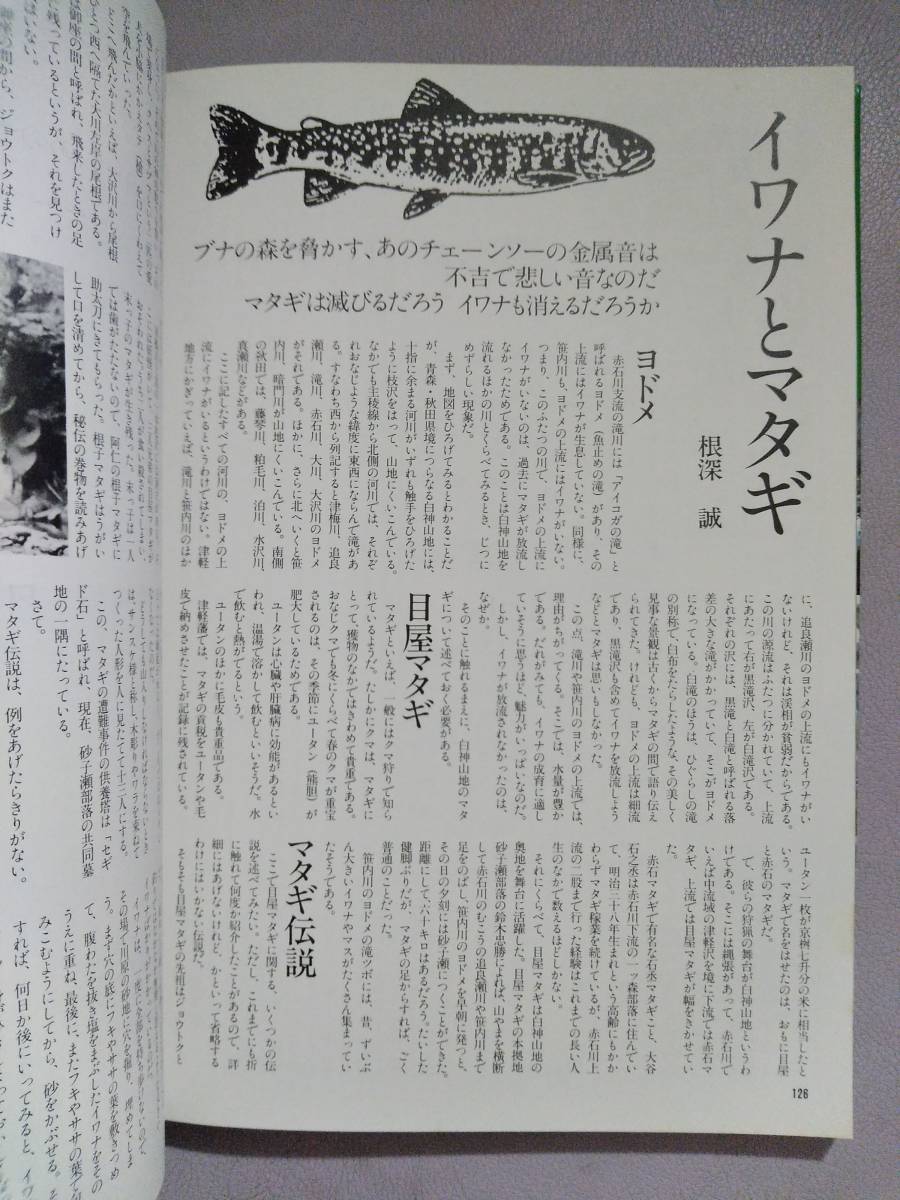 イワナとマタギ
根深 誠
ブナの森を脅かす、あのチェーンソーの金属音は
不吉で悲しい音なのだ
マタギは滅びるだろう イワナも消えるだろうか
ヨドメ
赤石川支流の滝川には「アイコガの滝」と
呼ばれるヨドメ(魚止めの滝)があり、その
上流にはイワナが生息していない。同様に、
笹内川も、ヨドメの上流にはイワナがいない。
つまり、このふたつの川で、ヨドメの上流に
イワナがいないのは、過去にマタギが放流し
なかったためである。このことは白神山地を
流れるほかの川とくらべてみるとき、じつに
めずらしい現象だ。
まず、地図をひろげてみるとわかることだ
が、青森・秋田県境につらなる白神山地には、
十指に余まる河川がいずれも触手をひろげた
ように枝沢をはって、山地にくいこんでいる。
なかでも主稜線から北側の河川では、それぞ
れおなじような緯度に東西にならんで滝があ
る。すなわち西から列記すると津梅川、追良
瀬川、滝川、赤石川、大川、大沢川のヨドメ
がそれである。ほかに、さらに北へいくと笹
内川、暗門川が山地にくいこんでいる。南側
の秋田では、藤琴川、粕毛川、泊川、水沢川、
真瀬川などがある。
ここに記したすべての河川の、ヨドメの上
流にイワナがいるというわけではない。津軽
地方にかぎっていえば、滝川と笹内川のほか
に、追良瀬川のヨドメの上流にもイワナがい
ないけれど、それは渓相が貧弱だからである。
この川の源流はふたつに分かれていて、上流
にあたって右が黒滝沢、左が白滝沢である。
それぞれの沢には、黒滝と白滝と呼ばれる落
差の大きな滝がかかっていて、そこがヨドメ
になっている。白滝のほうは、ひぐらしの滝
の別称で、白布をたらしたような、その美しく
見事な景観は古くからマタギの間で語り伝え
られてきた。けれども、ヨドメの上流は細流
であり、黒滝沢も含めてイワナを放流しよう
などとマタギは思いもしなかった。
この点、滝川や笹内川のヨドメの上流では、
理由がちがってくる。そこでは、水量が豊か
である。だれがみても、イワナの成育に適し
ていそうに思うほど、魅力がいっぱいなのだ。
しかし、イワナが放流されなかったのは、
なぜか。
そのことに触れるまえに、白神山地のマタ
ギについて述べておく必要がある。
目屋マタギ
マタギといえば、一般にはクマ狩りで知ら
れているようだ。たしかにクマは、マタギに
とって、獲物のなかではきわめて貴重である。
おなじクマでも冬にくらべて春のクマが重宝
されるのは、その季節にユータン(熊胆)が
肥大しているためである。
ユータンは心臓や肝臓病に効能があるとい
われ、温湯で溶かして飲むといいそうだ。水
で飲むと熱がでるという。
ユータンのほかに毛皮も貴重品である。
津軽藩では、マタギの貢税をユータンや毛
皮で納めさせたことが記録に残されている。
ユータン一枚が京桝七升分の米に相当したと
いう。マタギで名をはせたのは、おもに目屋
と赤石のマタギだ。
て、彼らの狩猟の舞台が白神山地というわ
けである。そこには縄張があって、赤石川で
いえば中流域の津軽沢を境に下流では赤石マ
タギ、上流では目屋マタギが幅をきかせてい
た。
赤石マタギで有名な石丞マタギこと、大谷
石之丞は赤石川下流の一ッ森部落に住んでい
て、明治三十八年生まれという高齢にもかか
わらずマタギ稼業を続けているが、赤石川上
流の二股まで行った経験はこれまでの長い人
生のなかで数えるほどしかない。
それにくらべて、目屋マタギは白神山地の
奥地を舞台に活躍した。目屋マタギの本拠地
砂子瀬部落の鈴木忠勝によれば、山やまを横断
して赤石川のむこうの追良瀬川や笹内川まで
足をのばし、笹内川のヨドメを早朝に発つと、
その日の夕刻には砂子瀬につくことができた。
距離にして、六十キロはあるだろう。たいした
健脚ぶりだが、マタギの足からすれば、ごく
普通のことだった。
笹内川のヨドメの滝ツボには、昔、ずいぶ
ん大きいイワナやマスがたくさん集まってい
たそうである。
マタギ伝説
ここで目屋マタギに関する、いくつかの伝
説を述べてみたい。ただし、これまでにも折
に触れて何度か紹介したことがあるので、詳
細にはあげないけれど、かといって省略する
わけにはいかない伝説だ。
そもそも目屋マタギの先祖はジョウトクと
126
空を飛んでいった。
どこへ飛んだかといえば、大沢川から尾根
ひとつ西へ隔てた大川左岸の尾根である。
は御座の間と呼ばれ、飛来したときの足
に残っているというが、それを見つけ
はいない。
御座の間から、ジョウトクはまた
末っ子のマタギが生き残った。末っ子は一人
では歯がたたないので、阿仁の根子マタギに
助太刀にきてもらった。根子マタギはうがい
して口を清めてから、秘伝の巻物を読みあげ
は、サンスケ様と称し、木彫りやワラを束ねて
つくった人形を人に見たてて十三人にする。
この、マタギの遭難事件の供養塔は「セギ
ド石」と呼ばれ、現在、砂子瀬部落の共同墓
地の一隅にたっている。
さて。
マタギ伝説は、例をあげたらきりがない。
その場で川原の砂地に穴を掘り、埋めてしま
う。まず穴の底にフキやササの葉を敷きつめ
て、腹わたを抜き塩をまぶしたイワナをその
うえに重ね、最後に、またフキやササの葉で
みこむようにしてから、砂をかぶせる。そ
すれば、何日か後にいってみると、イワ